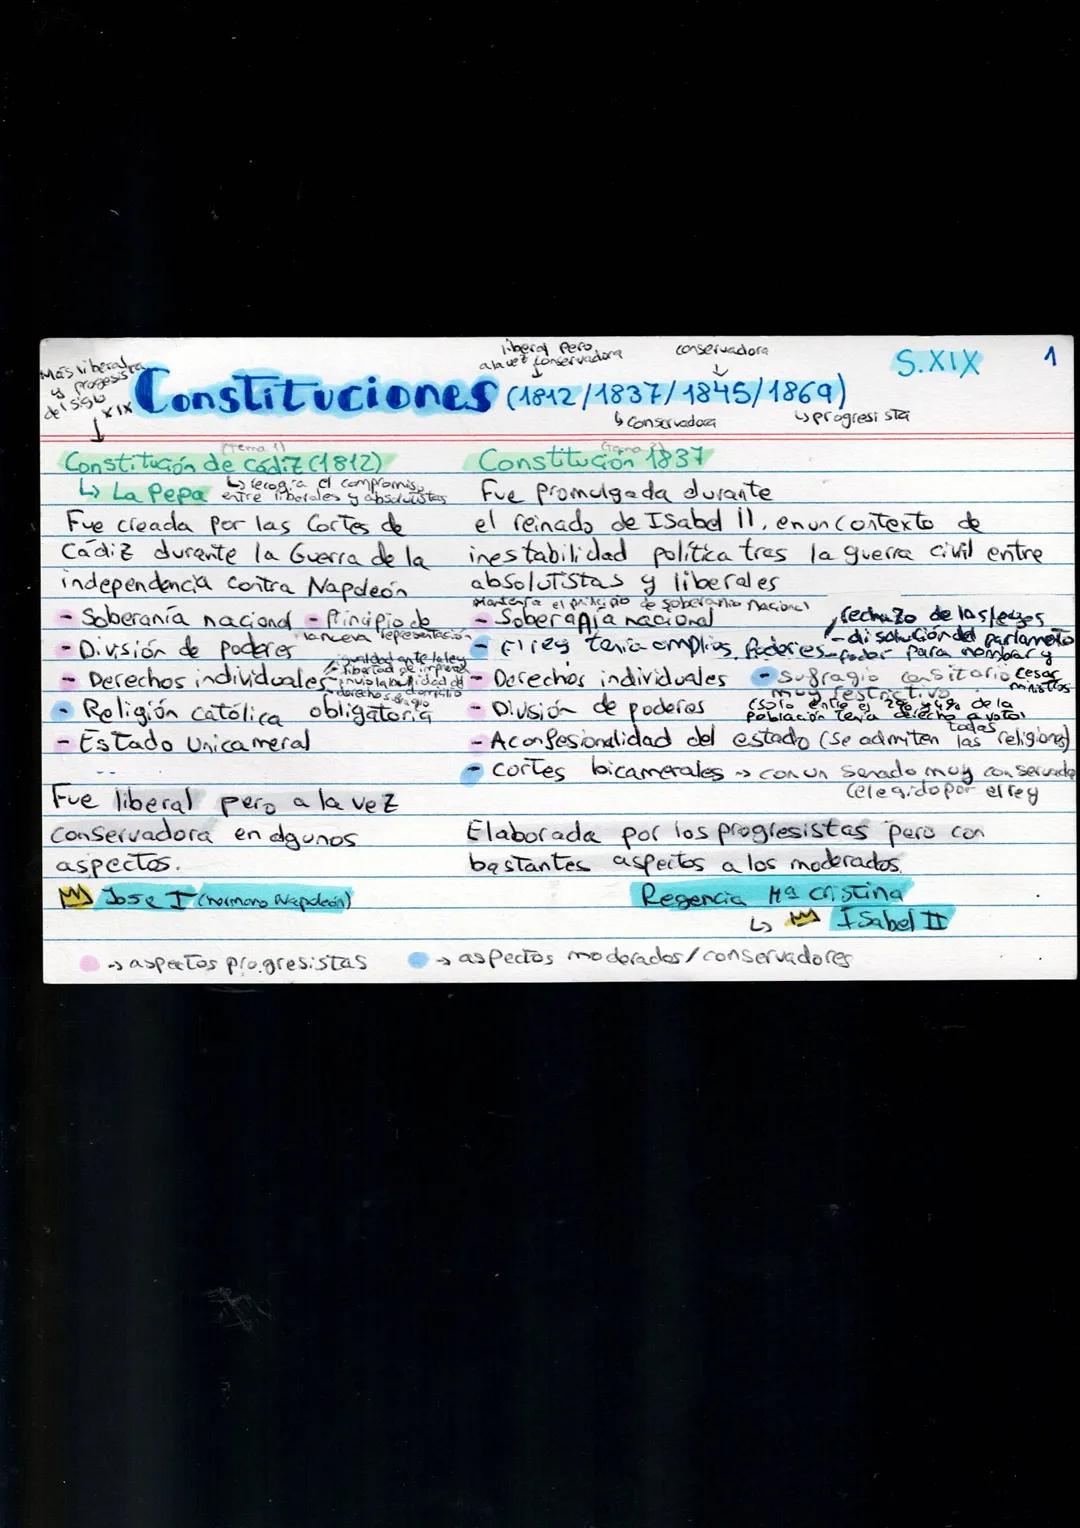 Más liberal
y progresista
del siglo
XIX
liberal pero
a la vez conservadora
conservadora
S.XIX
1
Constituciones (1812/1837/1845/1869)
conservadora
progresista
(Tema 1)
Constitución de Cádiz (1812)
↳ La Pepa
↳ recogía el compromiso
entre liberales y absolutistas
Fue creada por las Cortes de
Cádiz durante la Guerra de la
independencia contra Napoleón
- Soberanía nacional - Principio de
la nueva representación
- División de poderes
- Derechos individuales
igualdad ante la ley
libertad de imprenta
inviolabilidad de
domicilio
derechos
- Religión católica obligatoria
- Estado Unicameral
Fue liberal pero a la vez
conservadora en algunos
aspectos.
Jose I (hermano Napoleón)
Constitución 1837
Fue promulgada durante
el reinado de Isabel II, en un contexto de
inestabilidad política tras la guerra civil entre
absolutistas y liberales
Mantenía el principio de soberanía nacional
- Soberanía nacional
- El rey tenía amplios poderes
rechazo de las leyes
- disolución del parlamento
- poder para nombrar y
cesar ministros
- Derechos individuales
- Sufragio censitario
muy restrictivo
(solo entre el 2% y 4% de la
población tenía derecho a voto)
- División de poderes
- Aconfesionalidad del estado (se admiten todas las religiones)
- Cortes bicamerales → con un Senado muy conservador
(elegido por el rey
Elaborada por los progresistas pero con
bastantes aspectos a los moderados.
Regencia Mª Cristina
↳ Isabel II
→ aspectos progresistas
→ aspectos moderados/conservadores